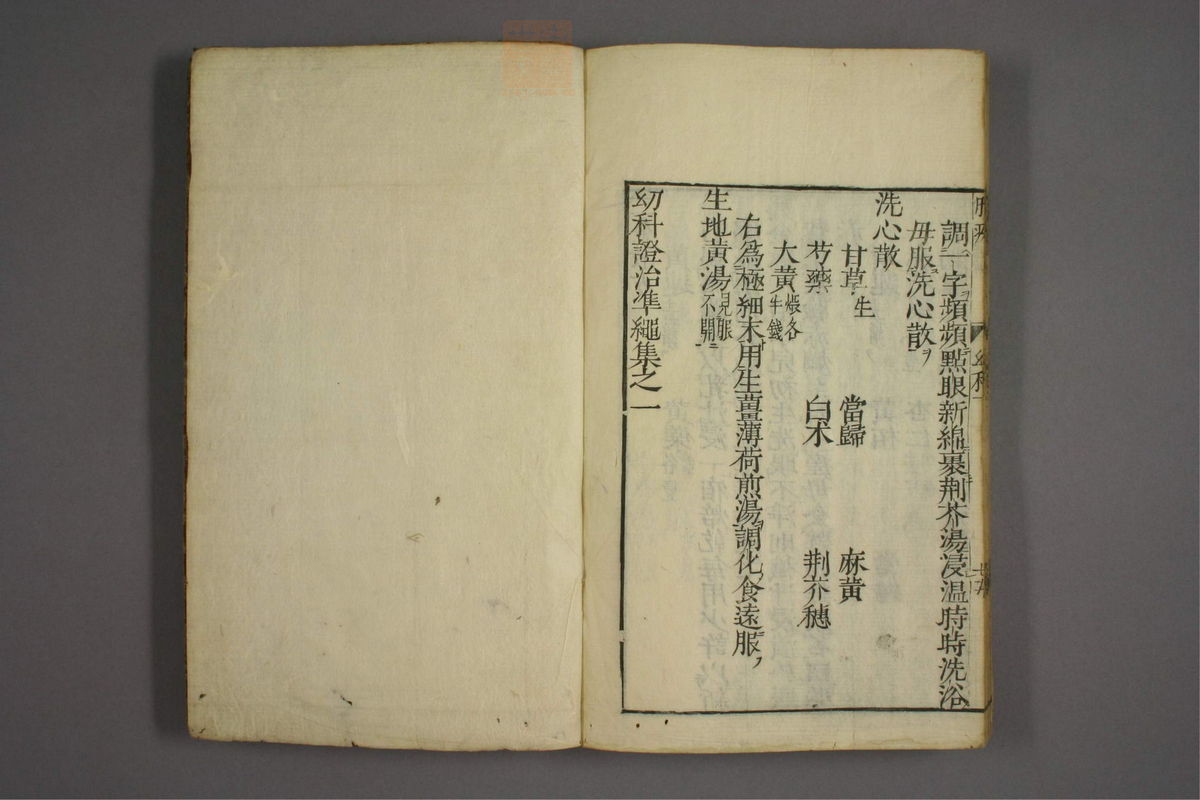 調一字頻頻點眼新綿裹荆芥湯浸温時時洗浴
毋服洗心散ヲ
洗心散
甘草生 當歸 麻黃
芍藥 白术 荆芥穗
大黃煨各半錢
右爲極細末用生薑薄荷煎湯調化食遠服
生地黃湯見眼不開
幼科證治準繩集之一